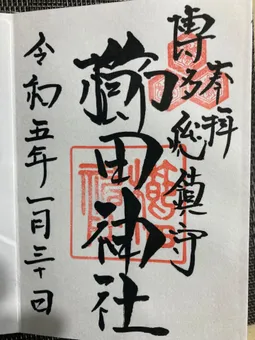 奉拝
博多総鎮守
櫛田神社
令和五年一月三十日